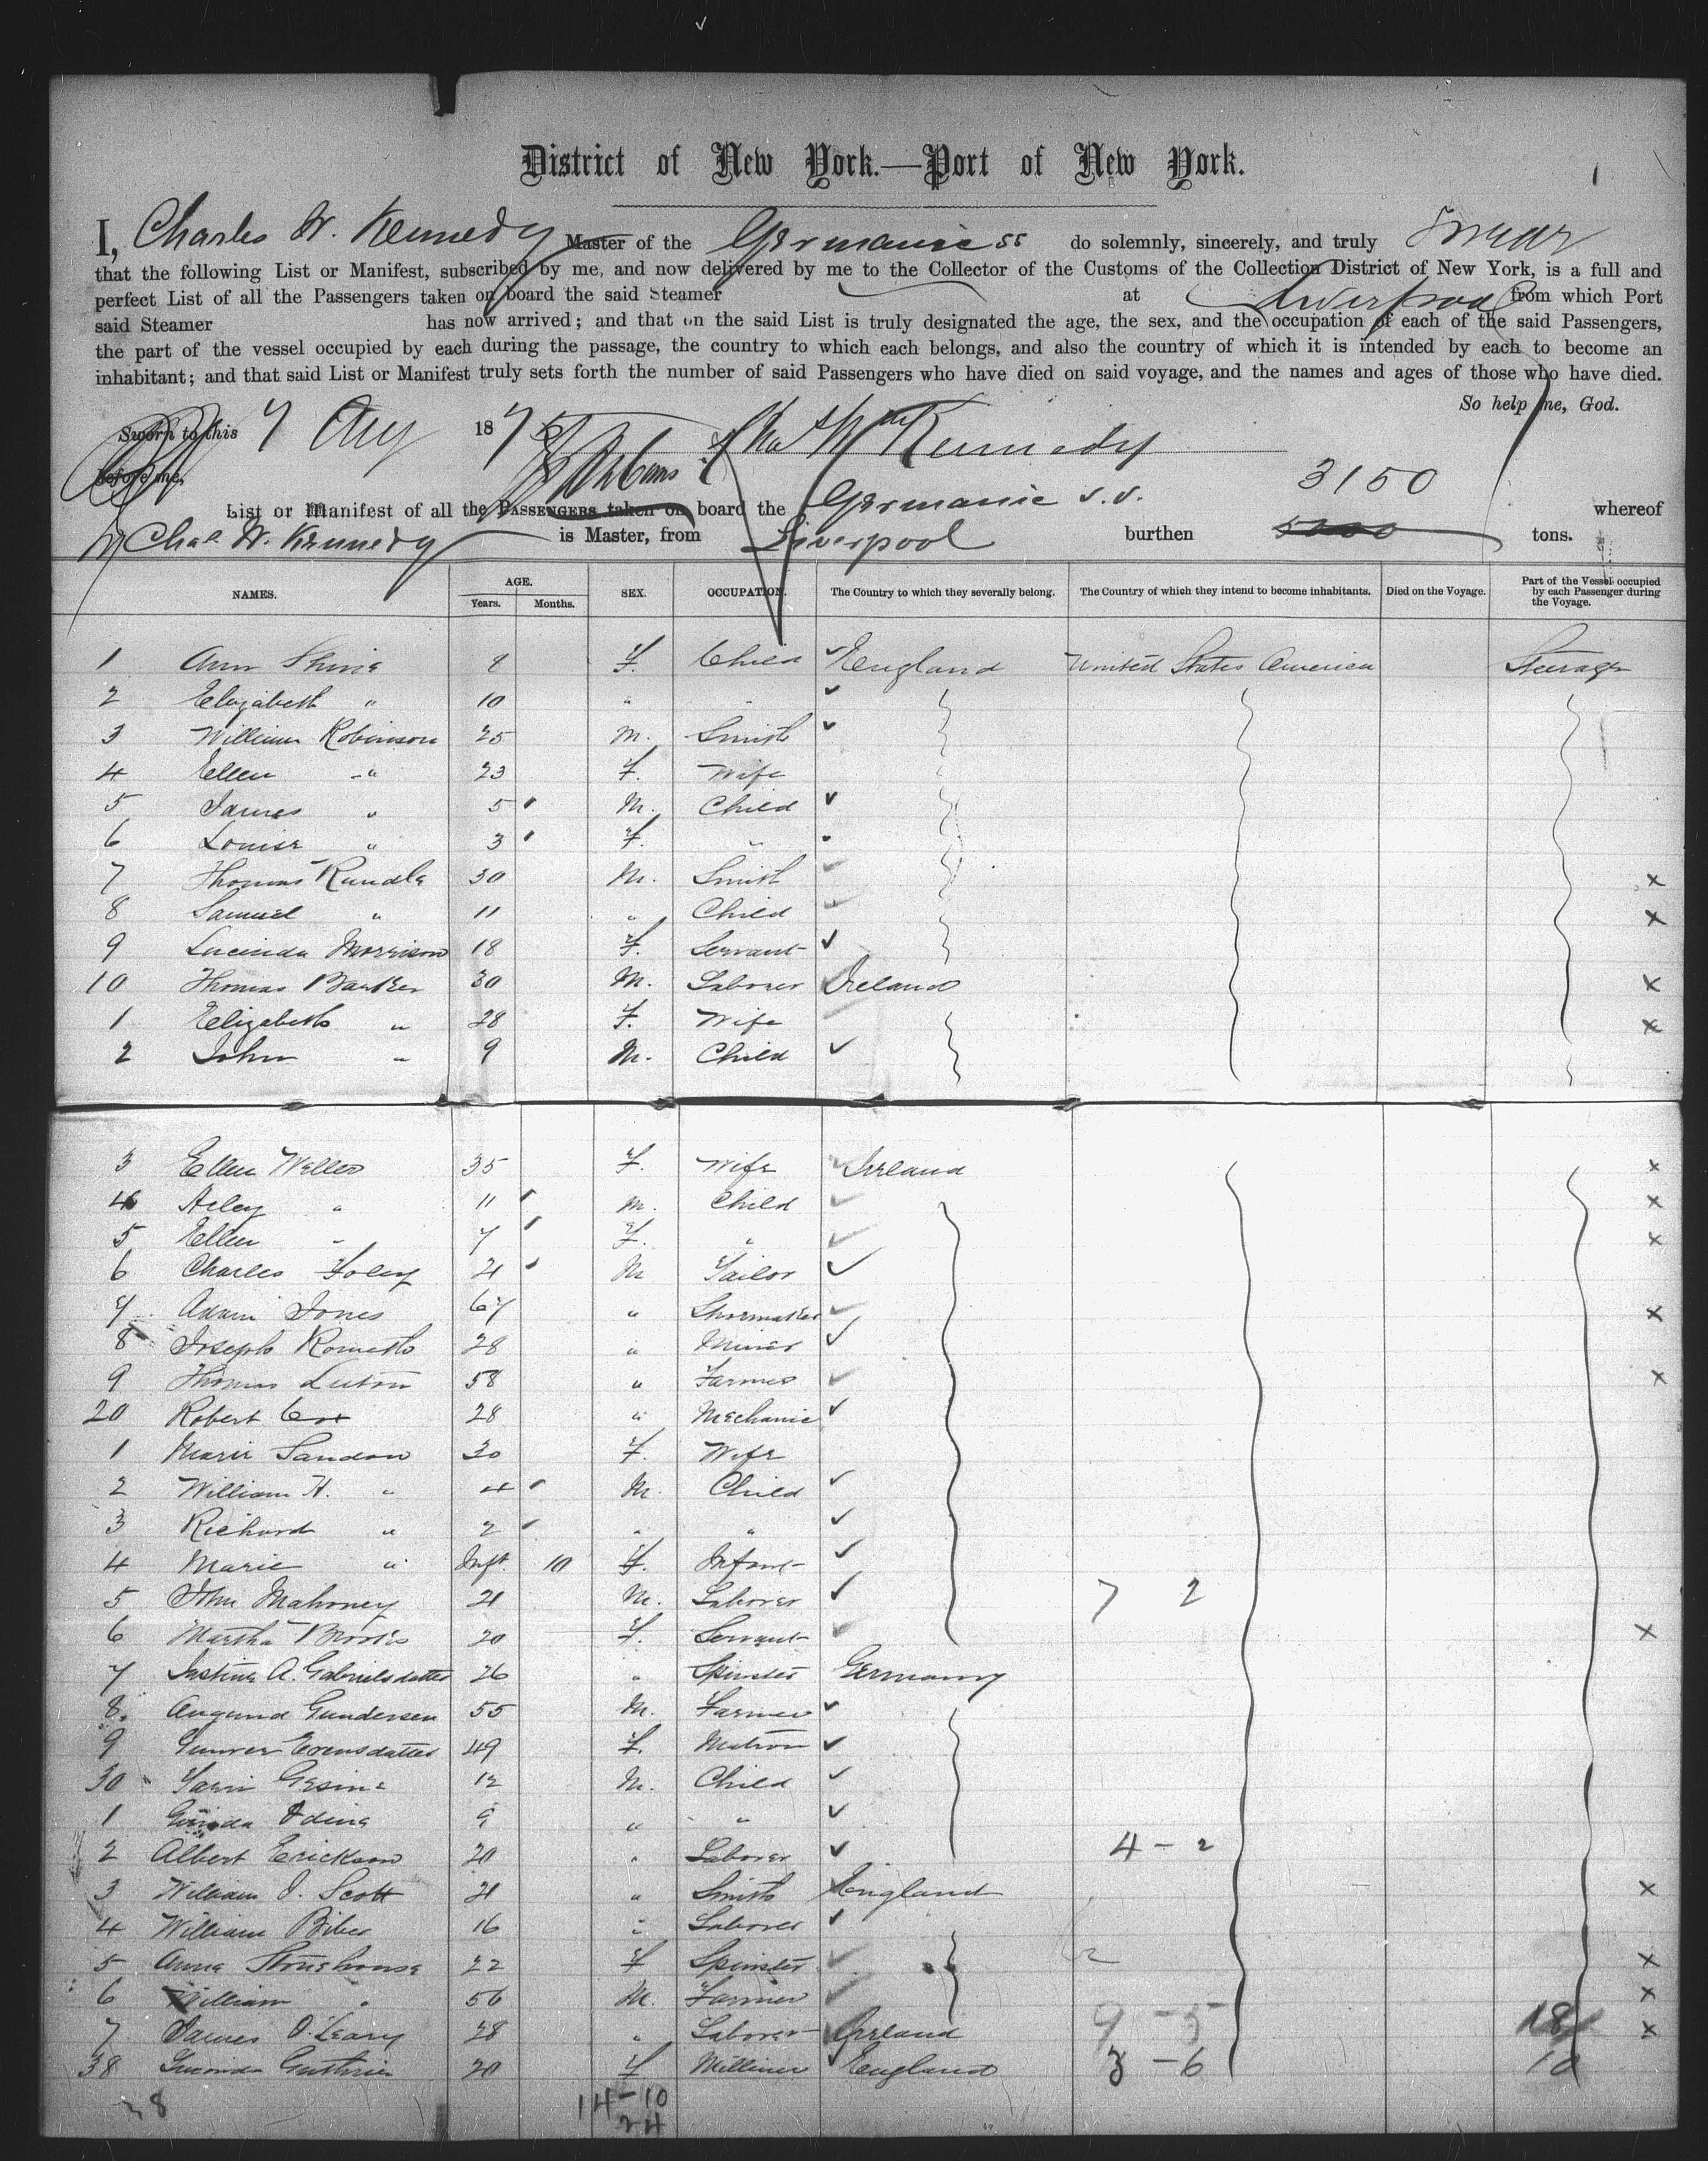 District of New York.—Port of New York.
1
I, Charles W. Kennedy Master of the Germanic ss do solemnly, sincerely, and truly swear
that the following List or Manifest, subscribed by me, and now delivered by me to the Collector of the Customs of the Collection District of New York, is a full and
perfect List of all the Passengers taken on board the said Steamer at Liverpool from which Port
said Steamer has now arrived; and that on the said List is truly designated the age, the sex, and the occupation of each of the said Passengers,
the part of the vessel occupied by each during the passage, the country to which each belongs, and also the country of which it is intended by each to become an
inhabitant; and that said List or Manifest truly sets forth the number of said Passengers who have died on said voyage, and the names and ages of those who have died.
So help me, God.
Sworn to this 7 Aug 1875 Chas Wm Kennedy
before me,
List or Manifest of all the Passengers taken on board the Germanic s.s. 3150 whereof
Chas. W. Kennedy is Master, from Liverpool burthen tons.
NAMES. AGE. Years. Months. SEX. OCCUPATION. The Country to which they severally belong. The Country of which they intend to become inhabitants. Died on the Voyage. Part of the Vessel occupied by each Passenger during the Voyage.
1 Ann 8 F. Child England United States America Steerage
2 Elizabeth " 10 " "
3 William Robinson 25 M. Smith
4 Ellen " 23 F. Wife
5 James " 5 M. Child
6 Louise " 3 F. "
7 Thomas Rundle 30 M. Smith x
8 Samuel " 11 " Child x
9 Lucinda Morrison 18 F. Servant
10 Thomas Barker 30 M. Laborer Ireland x
1 Elizabeth " 28 F. Wife x
2 John " 9 M. Child
3 Ellen Welles 35 F. Wife Ireland x
4 " 11 M. Child x
5 Ellen " 7 F. " x
6 Charles Foley 21 M Tailor
7 Adam Jones 67 " Shoemaker x
8 Joseph 28 " Miner
9 Thomas 58 " Farmer x
20 Robert Cox 28 " Mechanic
1 Marie Sandow 30 F. Wife
2 William H. " 4 M. Child
3 Richard " 2 " "
4 Marie " Inft. 10 F. Infant
5 John Mahoney 21 M. Laborer 7 2
6 Martha Brooks 20 F. Servant x
7 A. Gabrielsdatter 26 " Spinster Germany
8. Gundersen 55 M. Farmer
9 49 F. Matron
30 12 M. Child
1 9 " "
2 Albert Erickson 20 " Laborer 4 - 2
3 William J. Scott 21 " Smith England x
4 William 16 " Laborer
5 Anna 22 F Spinster 2 x
6 William " 56 M. Farmer x
7 James O'Leary 28 " Laborer Ireland 9 - 5 18 x
38 Guthrie 20 F Milliner England 3 - 6 10
14-10
24